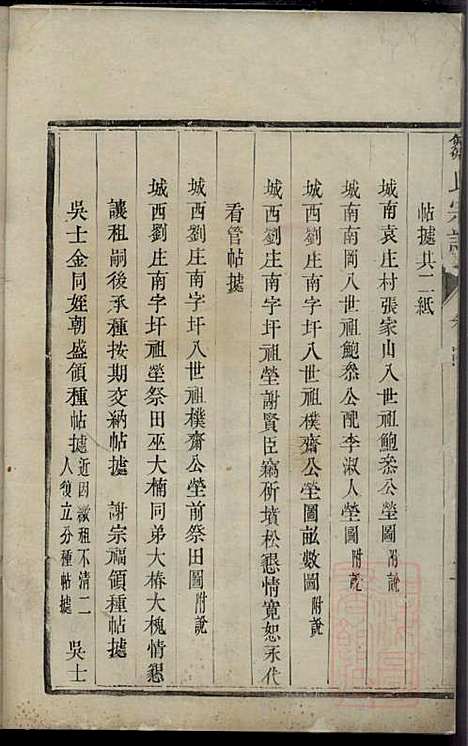 帖據共二紙
城南袁庄村張家山八世祖鮑叅公塋圖附說
城南南岡八世祖鮑叅公配李淑人塋圖附說
城西劉庄南字圩八世祖樸齋公塋圖竝數圖附說
城西劉庄南字圩祖塋謝賢臣竊斫墳松懇情寬恕永代
看管帖據
城西劉庄南字圩八世祖樸齋公塋前祭田圖附說
城西劉庄南字圩祖塋祭田巫大楠同弟大椿大槐情懇
讓租嗣後承種按期交納帖據　謝宗福領種帖據
吳士金同姪朝盛領種帖據近因繳租不清二人復立分種帖據　吳士